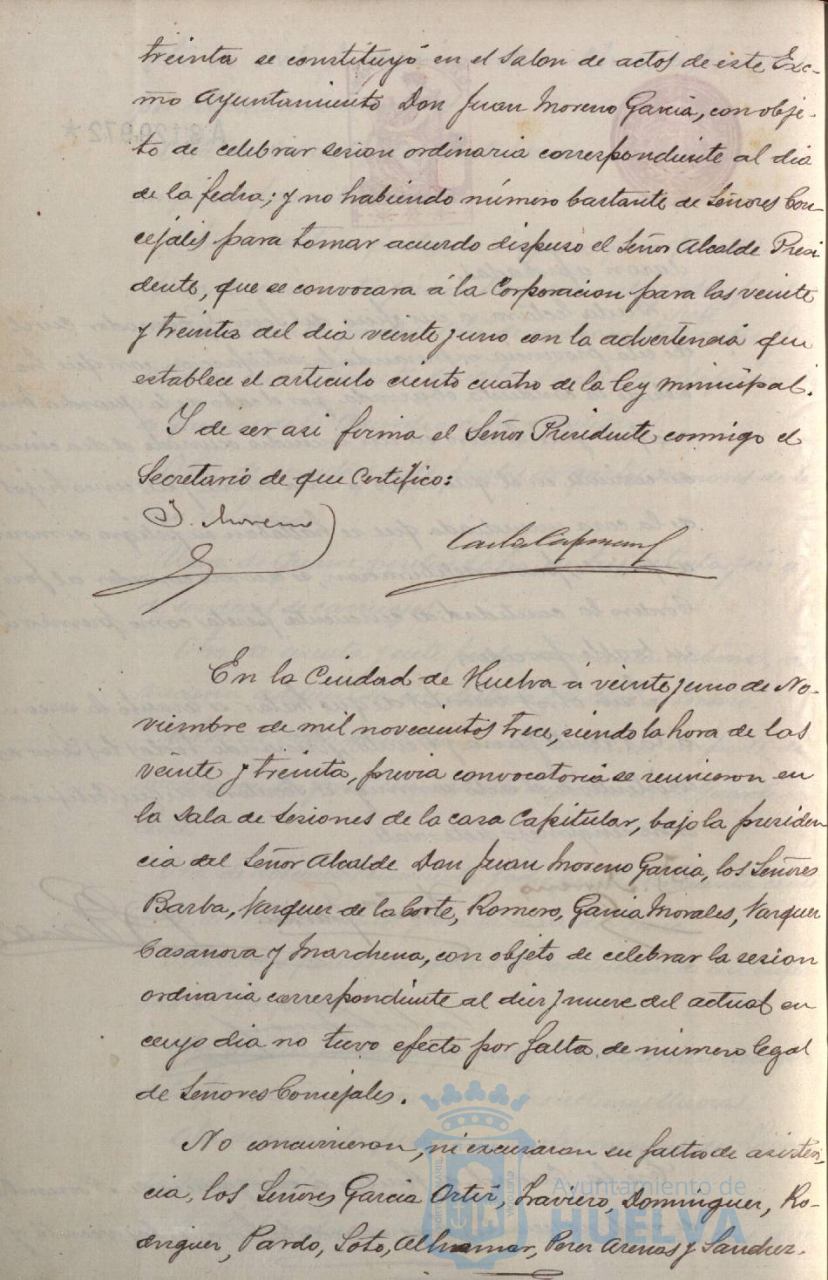 treinta se constituyó en el Salon de actos de este Exc-
mo Ayuntamiento Don Juan Moreno Garcia, con obje-
to de celebrar sesion ordinaria correspondiente al dia
de la fecha; y no habiendo número bastante de Señores Con-
cejales para tomar acuerdo dispuso el Señor Alcalde Presi
dente, que se convocara á la Corporacion para las veinte
y treinta del dia veinte y uno con la advertencia que
establece el articulo ciento cuatro de la ley municipal.
Y de ser asi firma el Señor Presidente conmigo el
Secretario de que Certifico:
J. Moreno
En la Ciudad de Huelva á veinte y uno de No-
viembre de mil novecientos trece, siendo la hora de las
veinte y treinta, previa convocatoria se reunieron en
la Sala de Sesiones de la casa Capitular, bajo la presiden
cia del Señor Alcalde Don Juan Moreno Garcia, los Señores
Barba, Vazquez de la Corte, Romero, Garcia Morales, Vazquez
Casanova y Marchena, con objeto de celebrar la sesion
ordinaria correspondiente al diez y nueve del actual en
cuyo dia no tuvo efecto por falta de número legal
de Señores Concejales.
No concurrieron, ni excusaron su falta de asisten
cia, los Señores Garcia Ortiz, Traviero, Dominguez, Ro-
driguez, Pardo, Soto, Perez Arenas y Sanchez.
Ayuntamiento de
HUELVA